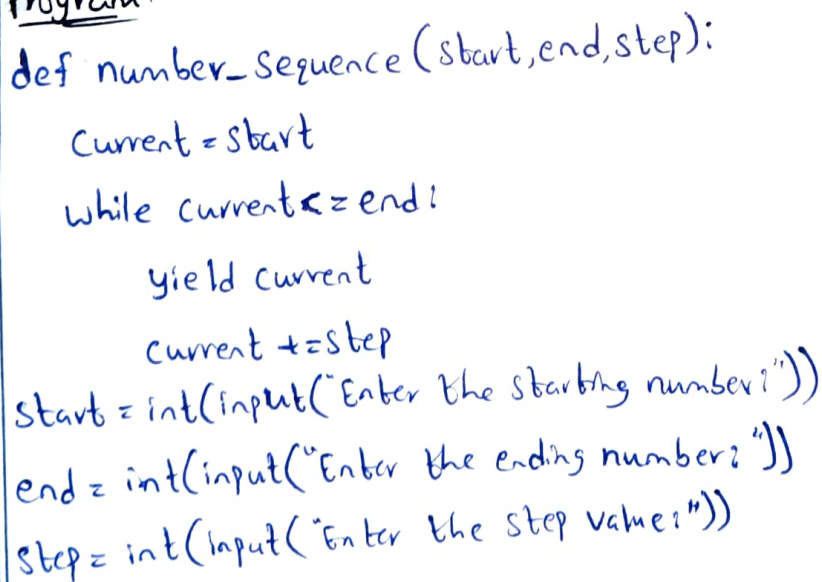 Program
def number_sequence(start,end,step):
current=start
while current<=end:
yield current
current +=step
start = int(input("Enter the starting number:"))
end = int(input("Enter the ending number: "))
step = int(input("Enter the step value:"))